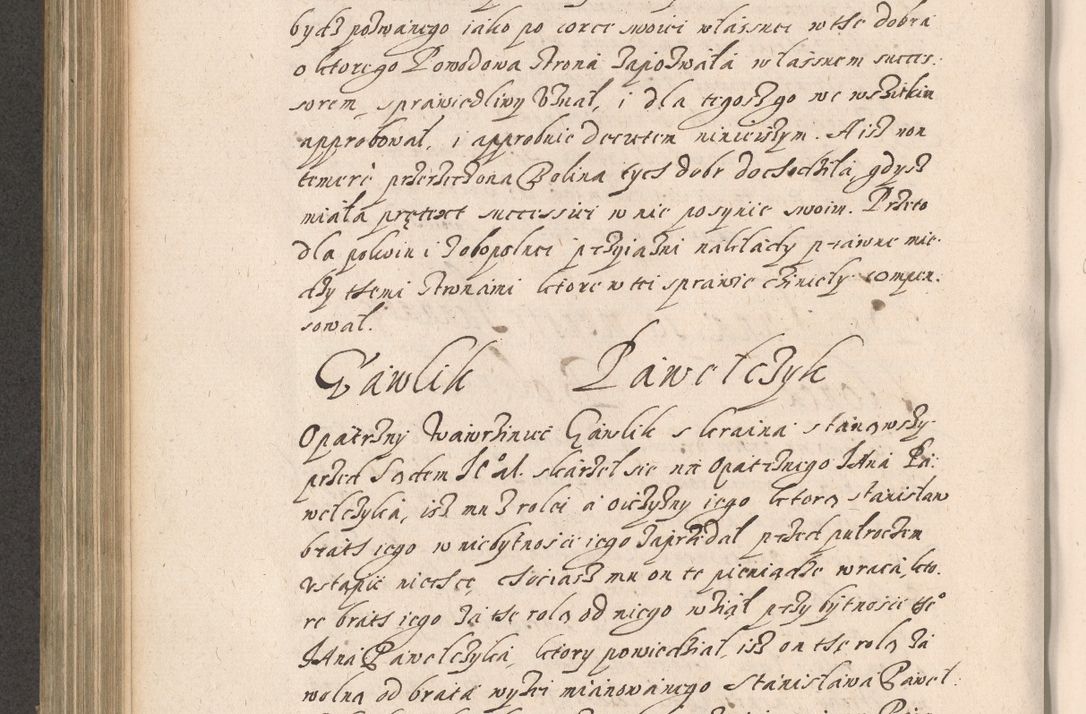 bydź pozwanego iako po corce swoiei własnei w tse dobra
o ktorego Powodowa strona zapozwała własnem succes:
sorem, sprawiedliwy uznał, i dla tegosz go we wszitkim
approbował, i approbuie decretem ninieiszym. A isz non
temere przerzeczona Bolina tych dobr dochodziła, gdysz
miała prętext successiei w nie po synie swoim. Przeto
dla pokoiu i zobopolnei przyiazni nakłady prawne mie-
dzy tsemi stronami ktore w tei sprawie czinieły compen:
sował.
Gawlik Pawelczyk
Opatrzny Wawrziniec Gawlik s kraina stanąwszy
przed Sądem Je° Al. skarzeł sie na Opatrznego Jana Pa:
welczyka, isz mu z rolei a oiczyzny iego ktorą Stanisław
brats iego w niebytnoscie iego zaprzedał przed pułroczem
ustąpic niechce, chociasz mu on te pieniądze wraca, kto:
re brats iego za tse rolą od niego wziął przy bytnoscie tse°
Jana Pawelczyka, ktory powiedział, isz on tse rolą za
wolną od brata wyżei mianowanego Stanisława Pawel: